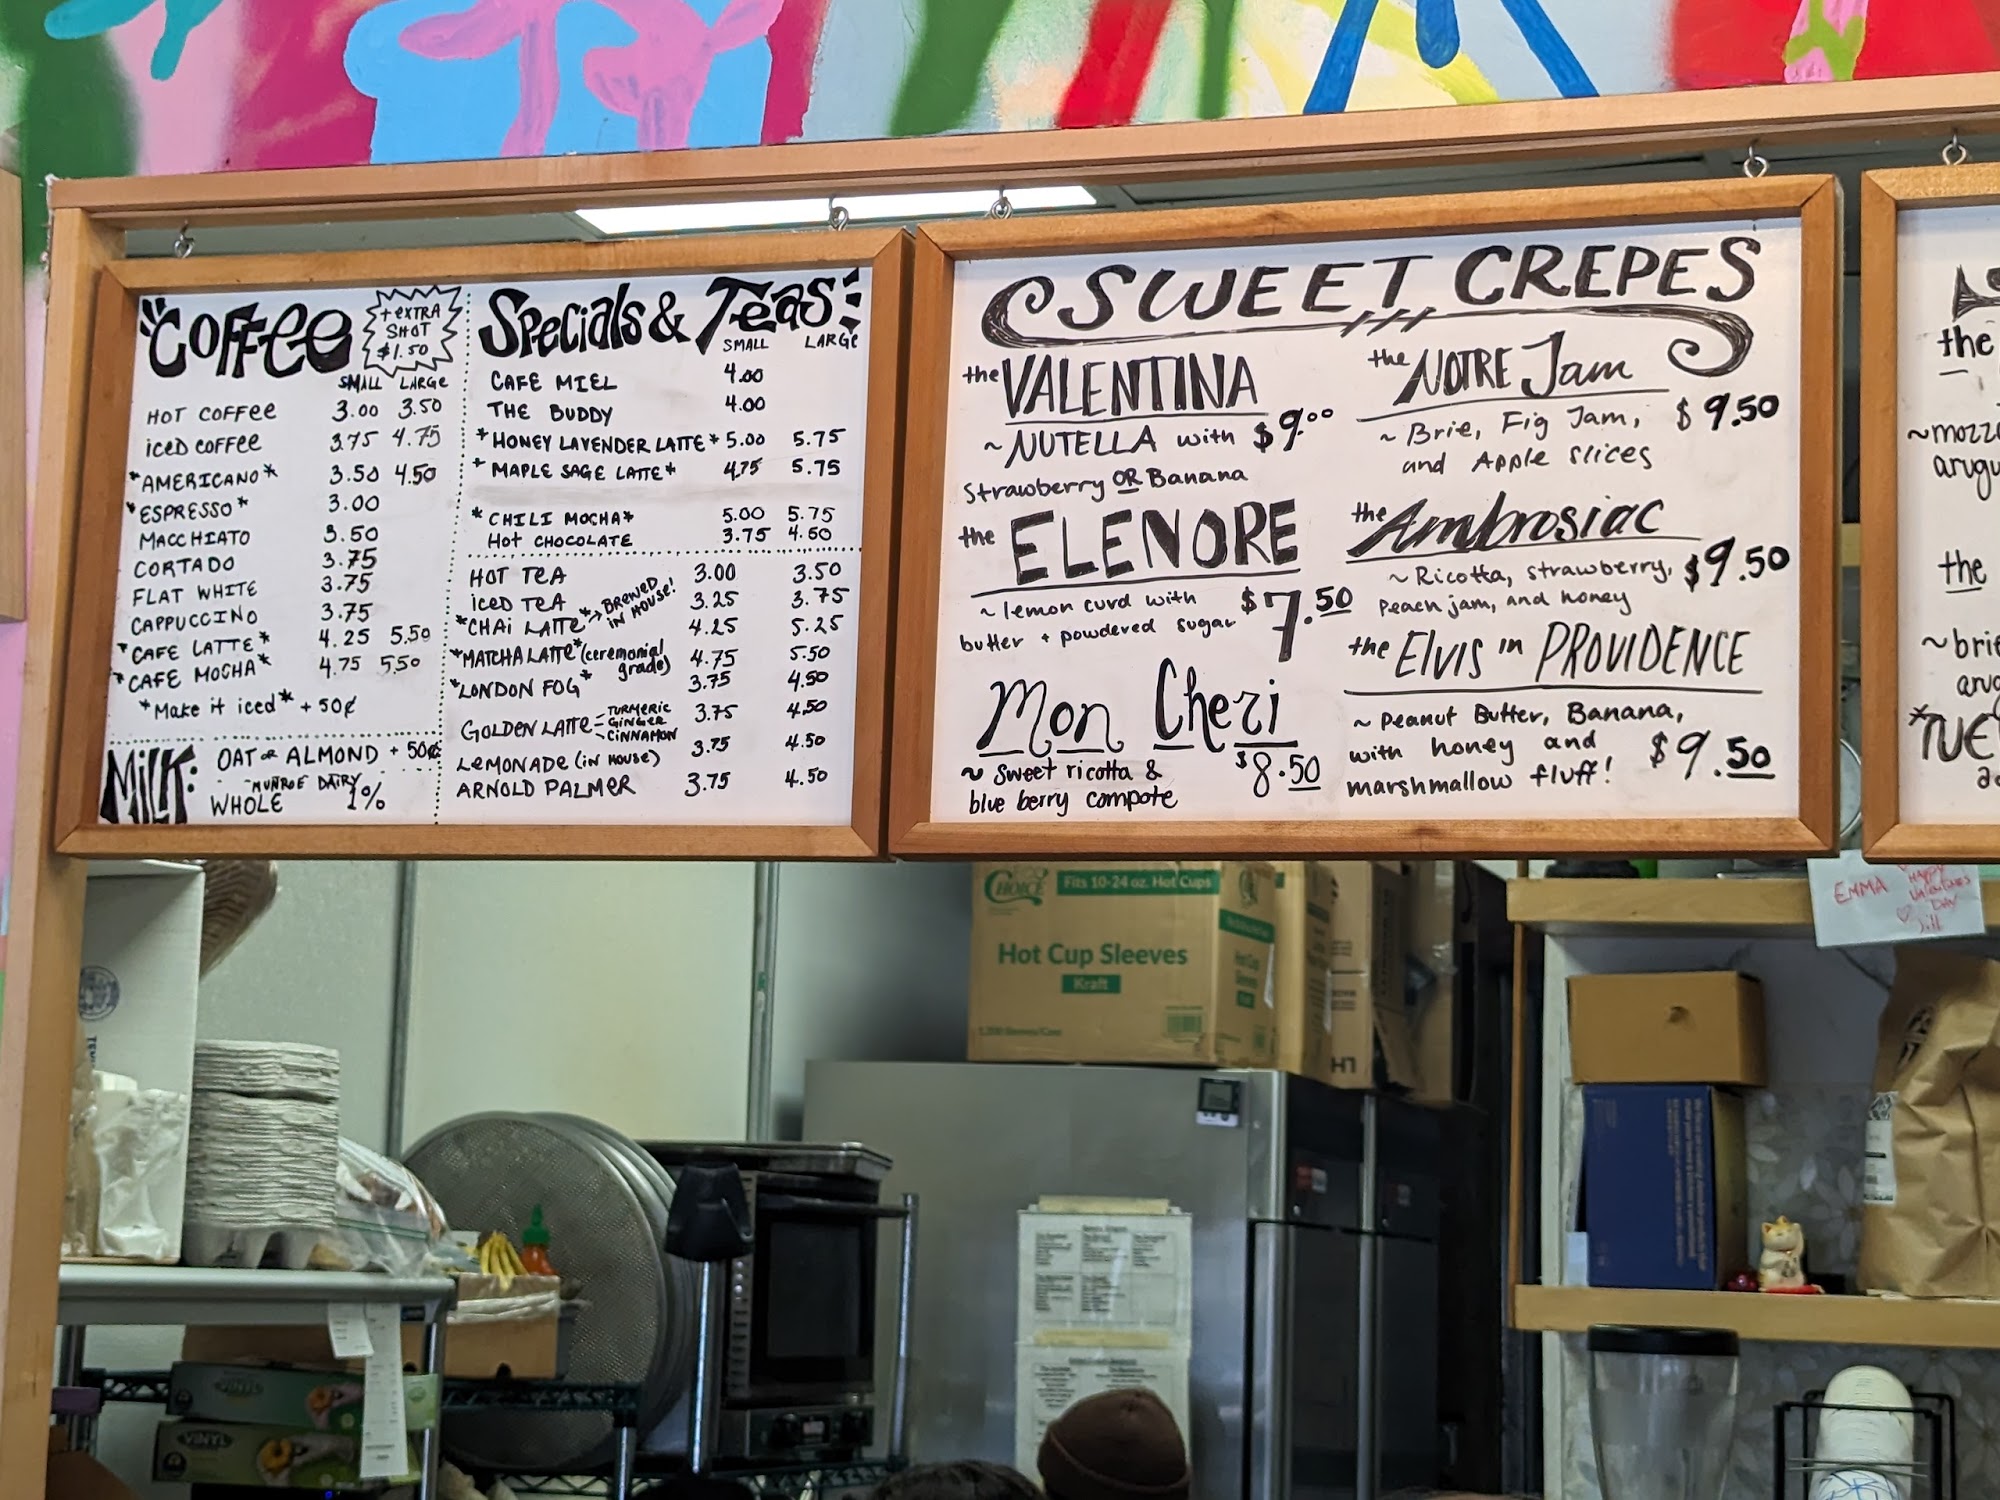 Coffee
+ extra
shot
$1.50
SMALL LARGE
HOT COFFEE 3.00 3.50
iced coffee 3.75 4.75
*AMERICANO* 3.50 4.50
*ESPRESSO* 3.00
MACCHIATO 3.50
CORTADO 3.75
FLAT WHITE 3.75
CAPPUCCINO 3.75
*CAFE LATTE* 4.25 5.50
*CAFE MOCHA* 4.75 5.50
*Make it iced* + 50¢
MILK: OAT or ALMOND + 50¢
MUNROE DAIRY
WHOLE 1%
Specials & Teas
SMALL LARGE
CAFE MIEL 4.00
THE BUDDY 4.00
*HONEY LAVENDER LATTE* 5.00 5.75
*MAPLE SAGE LATTE* 4.75 5.75
*CHILI MOCHA* 5.00 5.75
HOT CHOCOLATE 3.75 4.50
HOT TEA 3.00 3.50
iCED TEA 3.25 3.75
*CHAI LATTE* → BREWED IN HOUSE! 4.25 5.25
*MATCHA LATTE* (ceremonial grade) 4.75 5.50
*LONDON FOG* 3.75 4.50
GOLDEN LATTE - TURMERIC GINGER CINNAMON 3.75 4.50
LEMONADE (IN HOUSE) 3.75 4.50
ARNOLD PALMER 3.75 4.50
SWEET CREPES
the VALENTINA
~ NUTELLA with $9.00
Strawberry OR Banana
the ELENORE
~ lemon curd with $7.50
butter + powdered sugar
Mon Cheri
~ sweet ricotta & $8.50
blue berry compote
the NOTRE Jam
~ Brie, Fig Jam, $9.50
and Apple slices
the Ambrosiac
~ Ricotta, strawberry, $9.50
Peach jam, and honey
the Elvis in PROVIDENCE
~ Peanut Butter, Banana,
with honey and $9.50
marshmallow fluff!
the
~mozz
arugu
the
~brie
aru
CHOICE
Fits 10-24 oz. Hot Cups
Hot Cup Sleeves
Kraft
Hot Cup
Sleeves
EMMA
HAPPY
VALENTINES
DAY
Jill
VINYL
VINYL